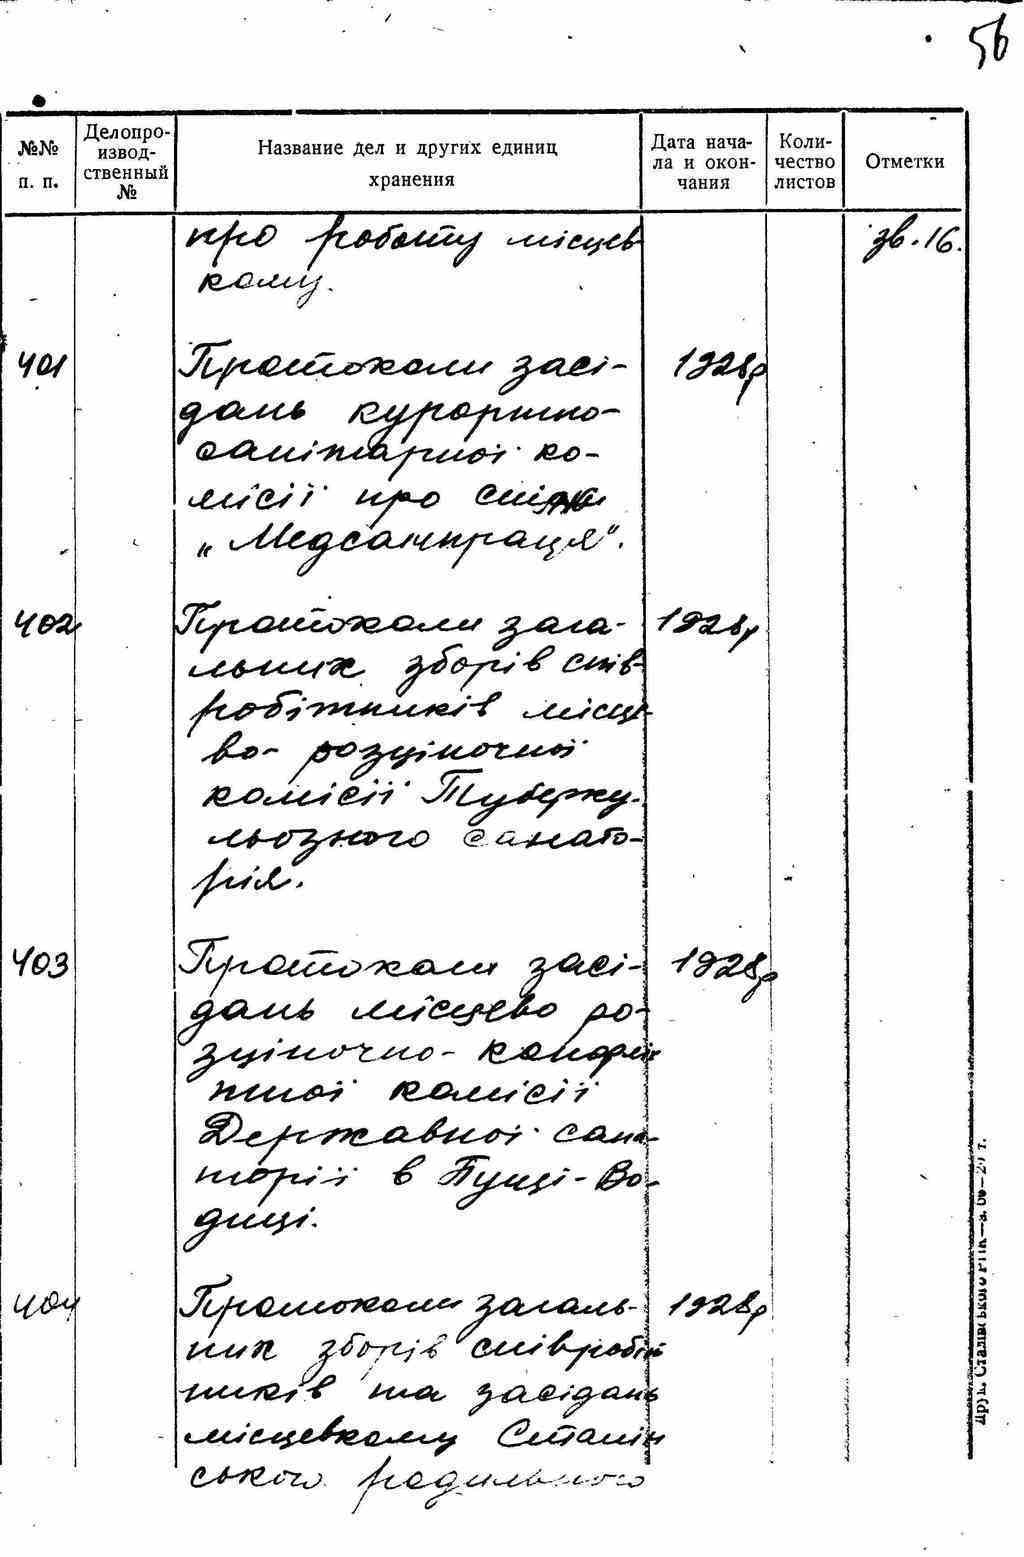 56
№№ п. п.
Делопро-
извод-
ственный
№
Название дел и других единиц
хранения
Дата нача-
ла и окон-
чания
Коли-
чество
листов
Отметки
про роботу місцев
кому.
зв. 16.
401
Протокали засі-
1928р
дань курортно-
санітарної ко-
місії про
„Медсанпраця".
402
Протокали зага-
1928р
льних зборів спів-
робітників місце-
во-розціночної
комісії Туберку-
льозного санато-
рія.
403
Протокали засі-
1928р
дань місцево ро-
зціночно-конфлік
тної комісії
Державної сана-
торії в Пущі-Во-
диці.
404
Протокали загаль-
1928р
них зборів співробіт
ників та засідань
місцевкому Сталін
ського родильного
Друк. Сталінського